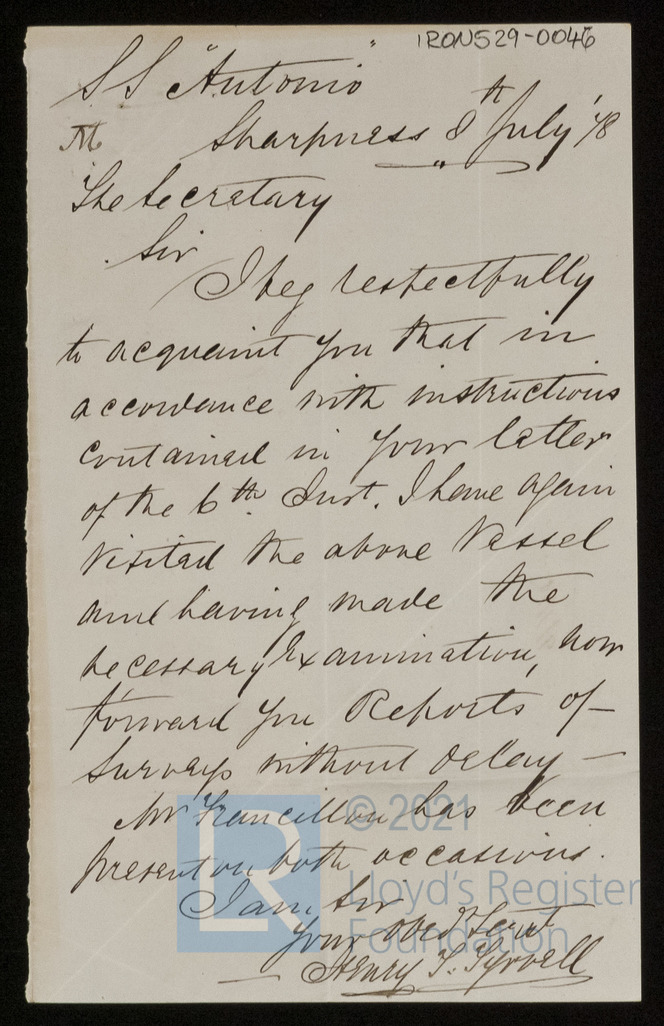 IRON529-0046
SS "Antonio"
Sharpness 8th July '78
The Secretary
Sir
I beg respectfully
to acquaint you that in
accordance with instructions
contained in your letter
of the 6th Inst. I have again
Visited the above Vessel
and having made the
necessary Examination, now
forward you Reports of
Surveys without delay -
Mr Francillon has been
present on both occasions.
I am, Sir
Your obedt Servt
Henry T. Tyrrell
LR © 2021
Lloyd's Register
Foundation